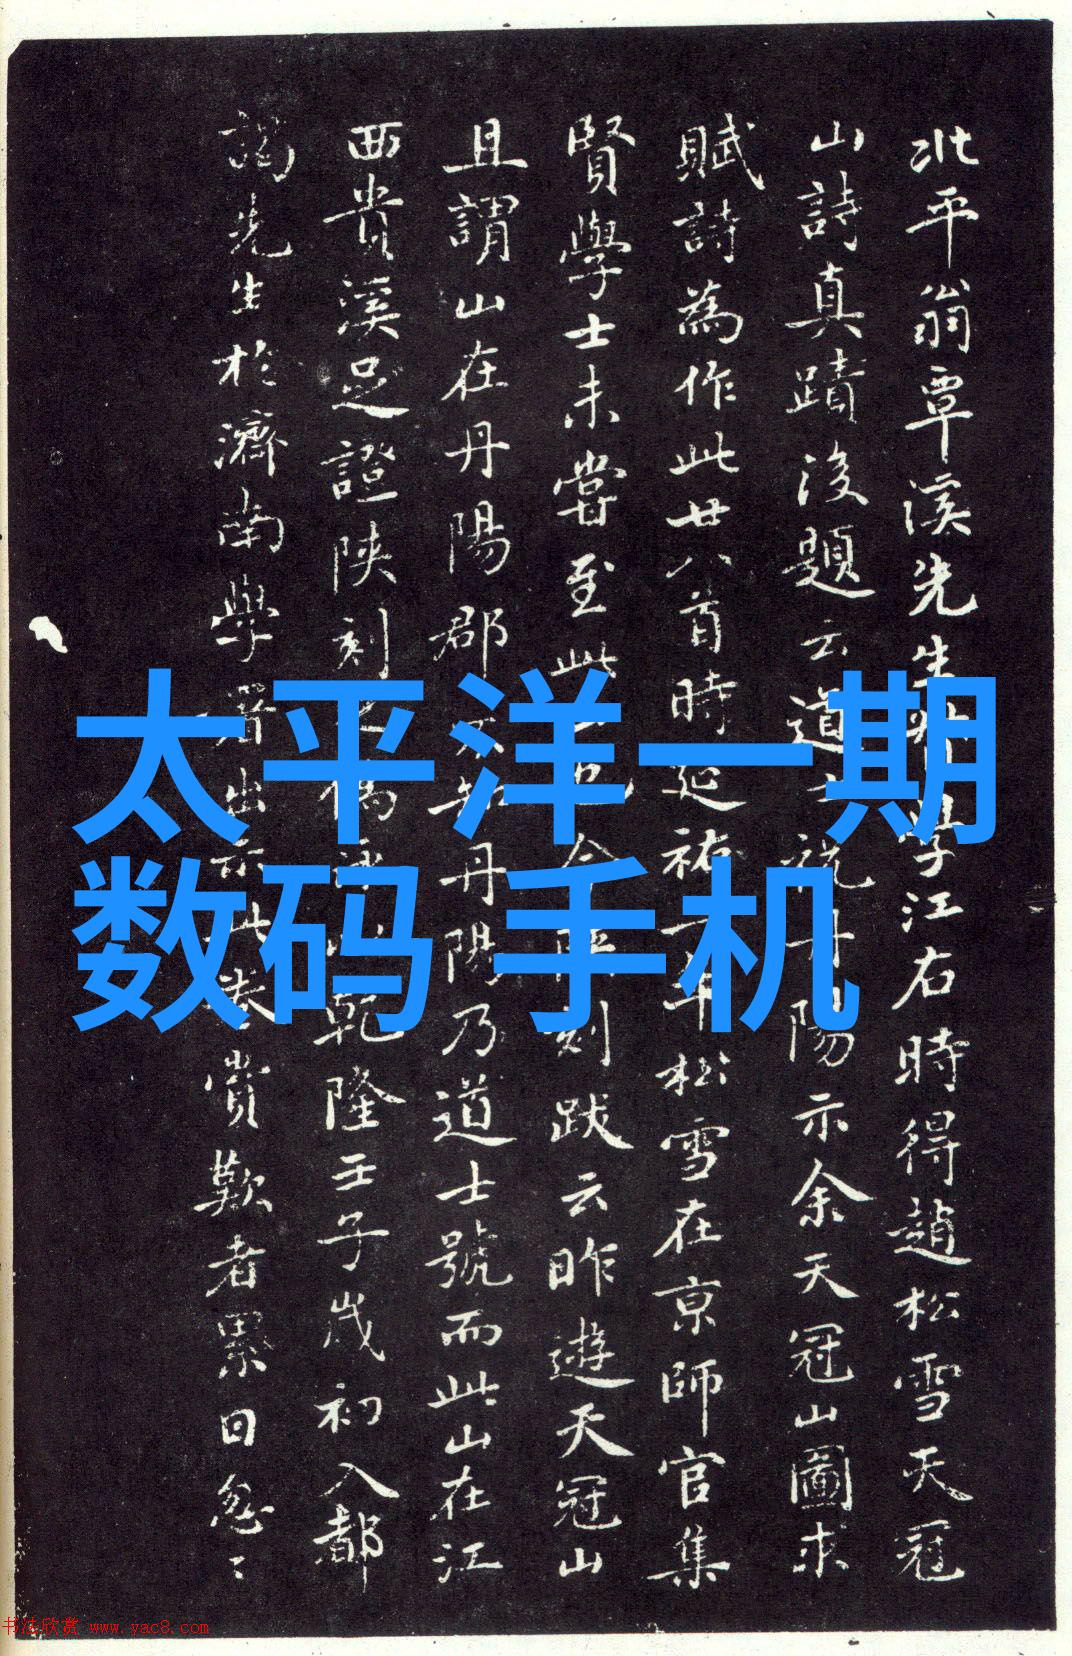 北平翁覃溪先生視學江右時得趙松雪天冠
山詩真蹟後題云道士祝丹陽示余天冠山圖求
賦詩為作此廿八首時延祐二年松雪在京師官集
賢學士未嘗至此山也今陝刻跋云昨遊天冠山
且謂山在丹陽郡不知丹陽乃道士號而此山在江
西貴溪足證陝刻之偽
乾隆壬子歲初入都
謁先生於濟南學署出示此卷賞歎者累日忽〻
太平洋一期
数码 手机
书法欣赏 www.yac8.com